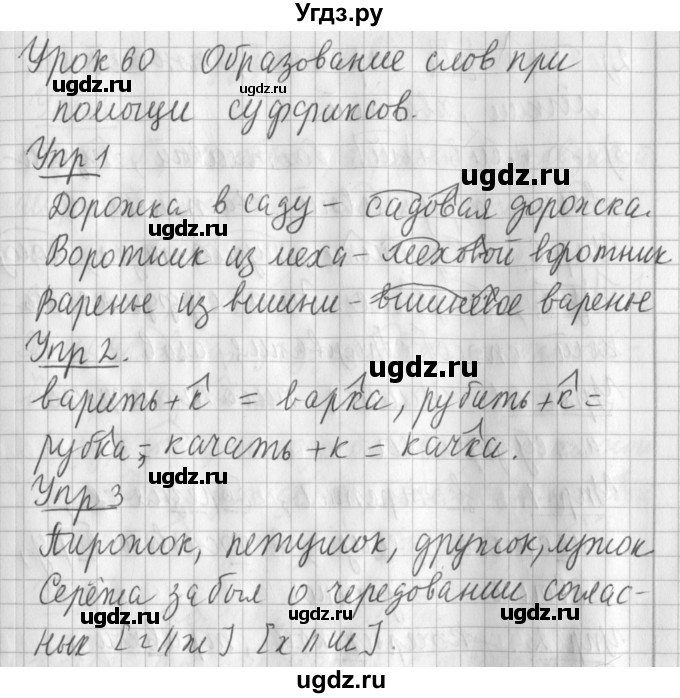 Угдз.ру
Урок 60 Образование слов при
помощи суффиксов.
Упр 1
Дорожка в саду - садовая дорожка.
Воротник из меха - меховой воротник
Варенье из вишни - вишнёвое варенье
Упр 2.
варить + к = варка, рубить + к =
рубка, качать + к = качка.
Упр 3
Пирожок, петушок, дружок, лужок
Серёжа забыл о чередовании соглас-
ных [г//ж] [х//ш].
ugdz.ru
ugdz.ru
ugdz.ru
ugdz.ru
ugdz.ru
ugdz.ru
ugdz.ru
ugdz.ru
ugdz.ru
ugdz.ru
ugdz.ru
ugdz.ru